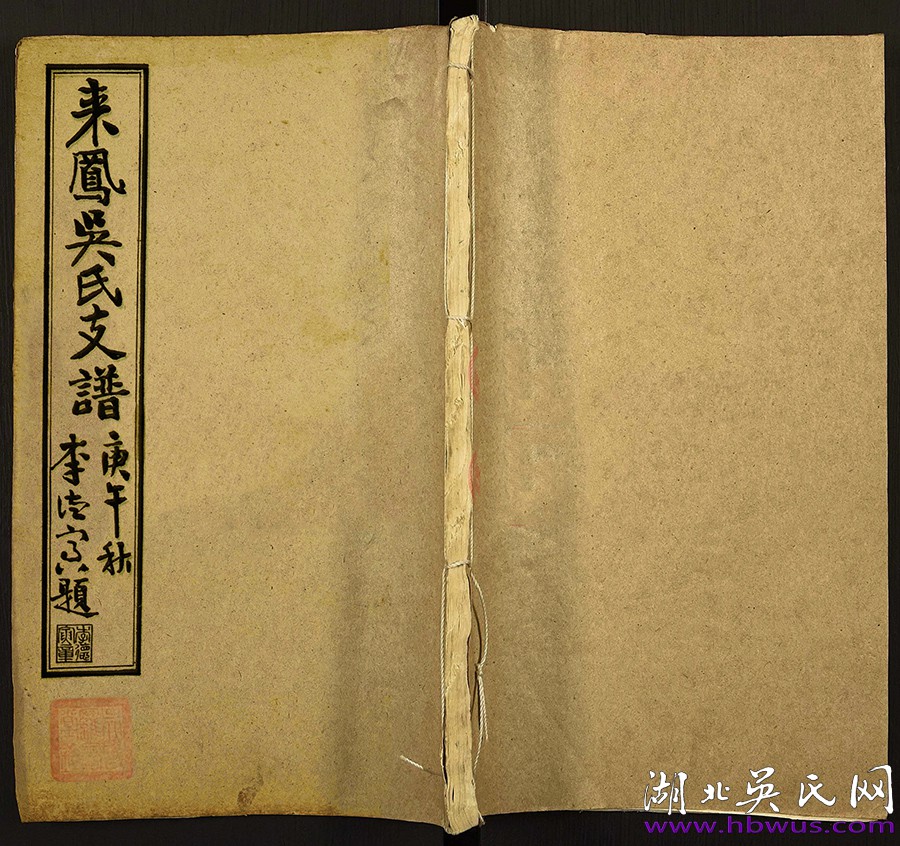 来鳳吳氏支譜
庚午秋
李德寅題
湖北吳氏网
www.hbwus.com